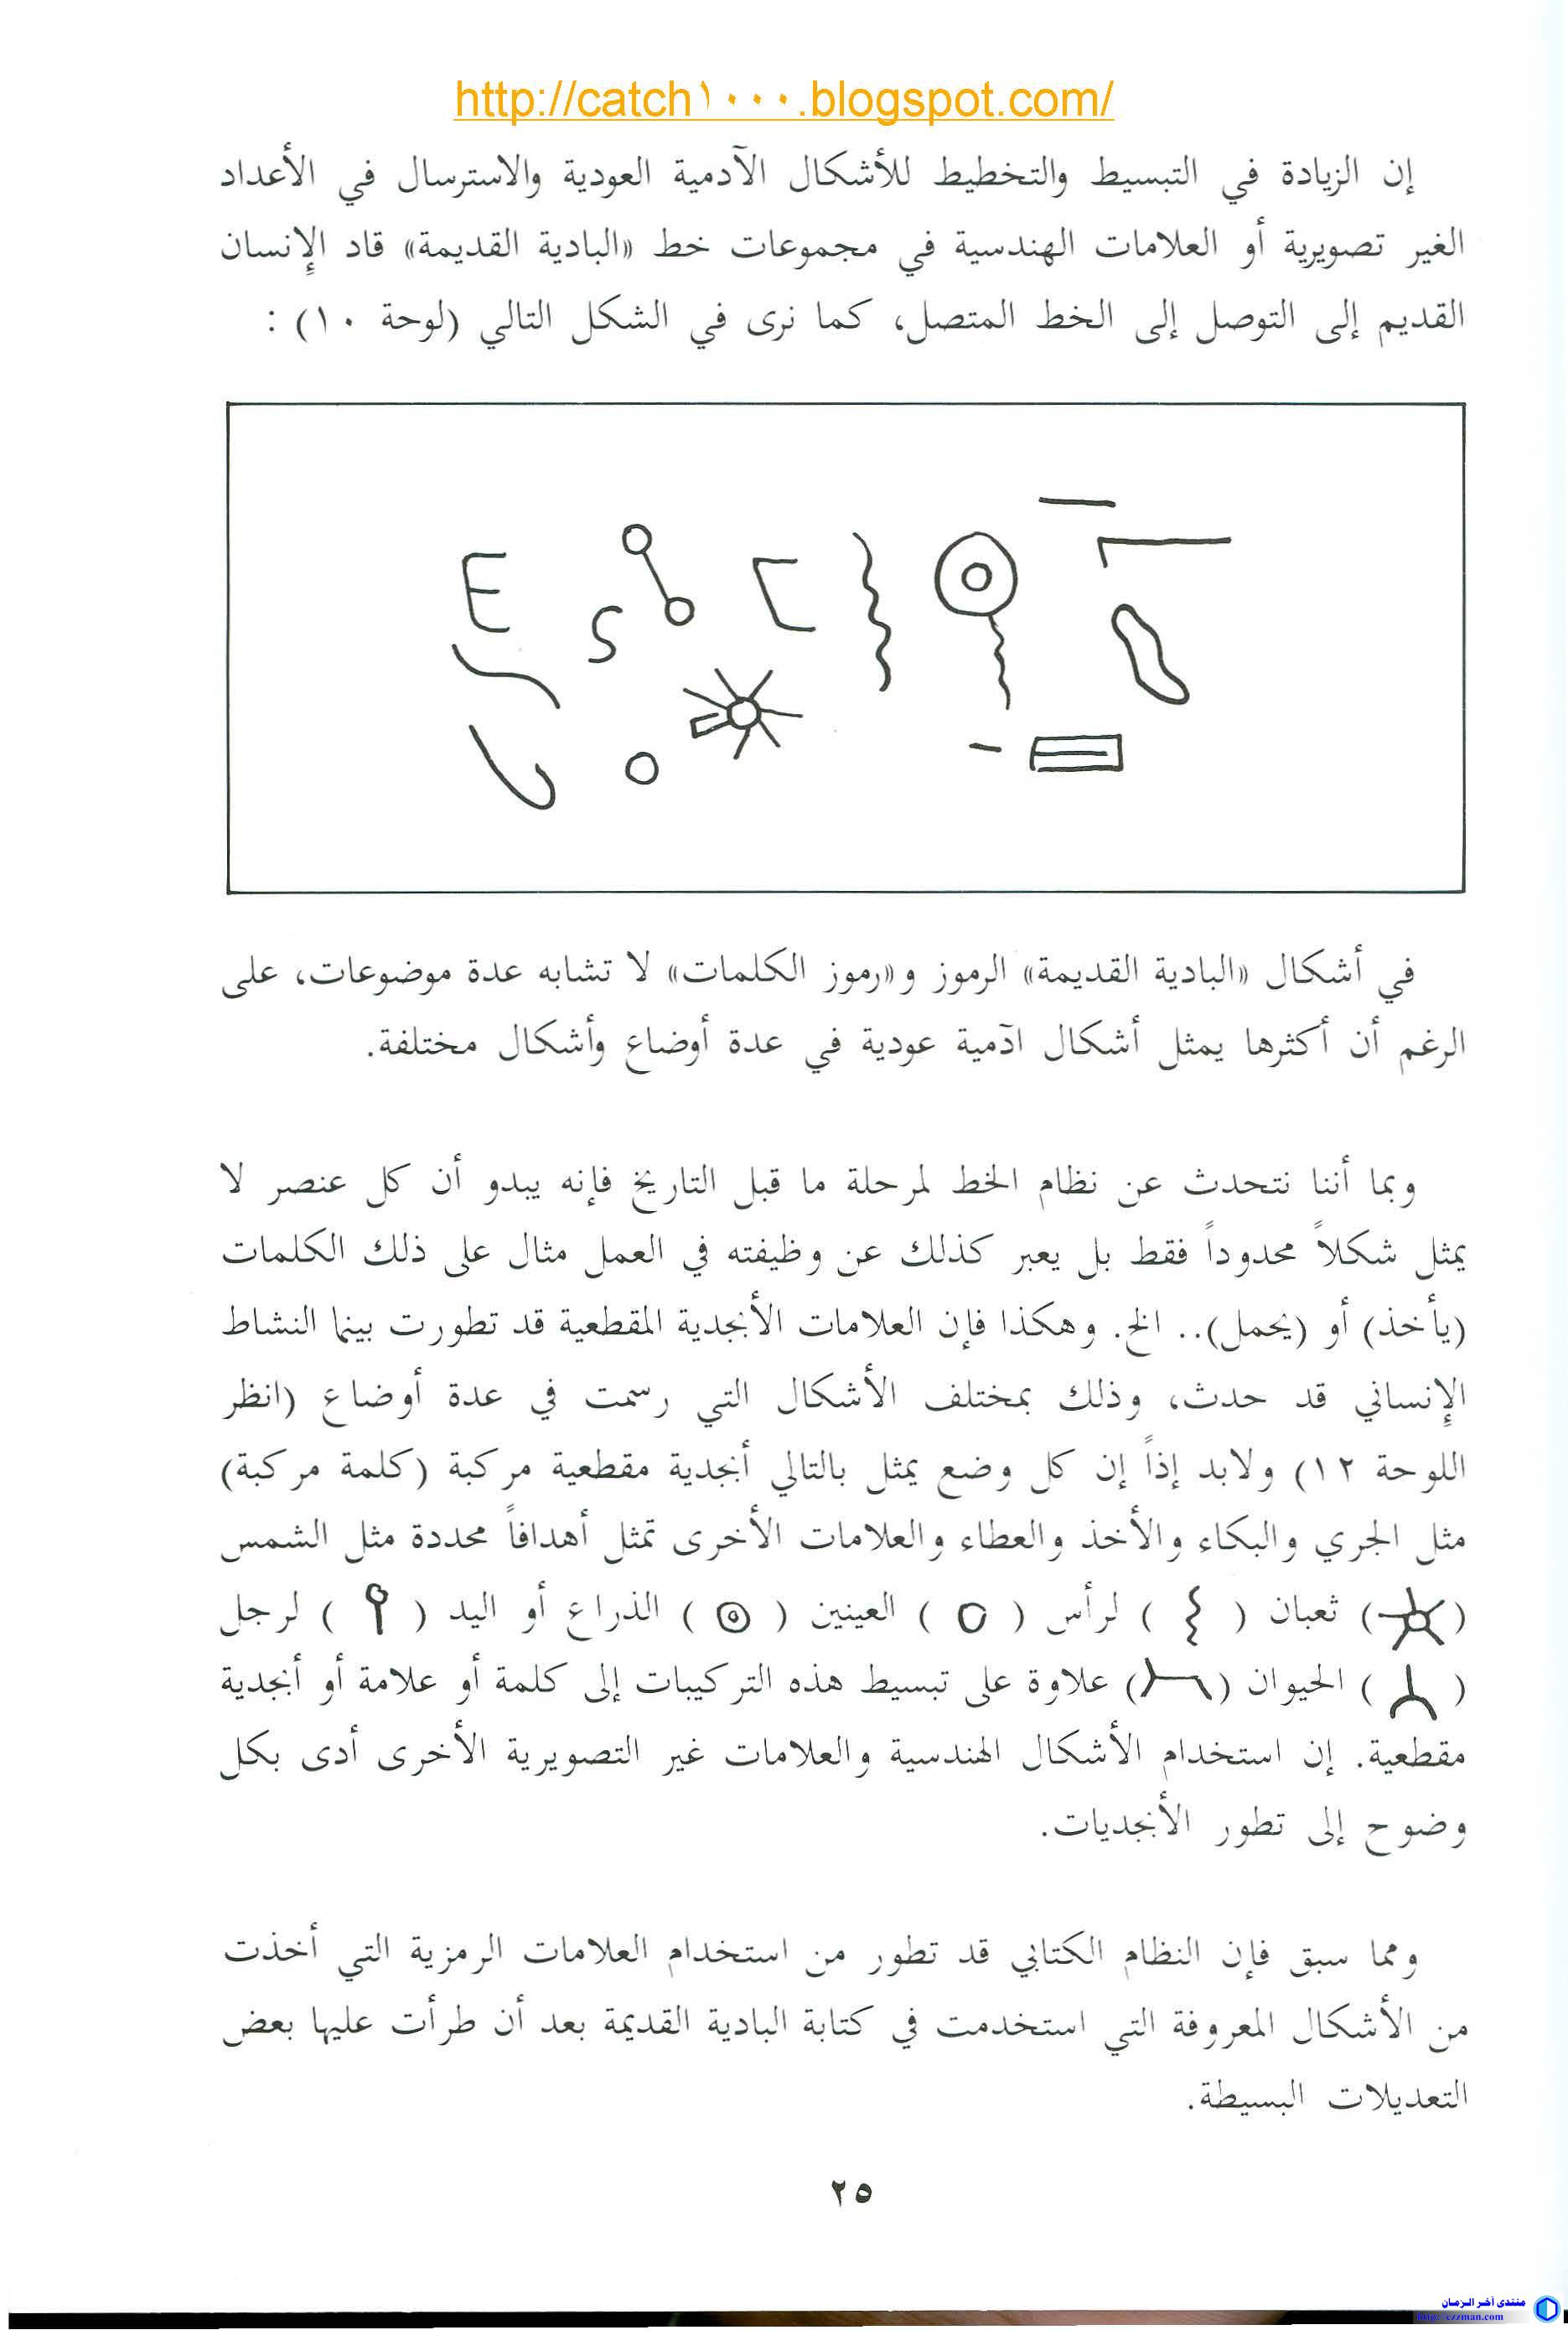 http://catch١٠٠٠.blogspot.com/
إن الزيادة في التبسيط والتخطيط للأشكال الآدمية العودية والاسترسال في الأعداد
الغير تصويرية أو العلامات الهندسية في مجموعات خط «البادية القديمة» قاد الإنسان
القديم إلى التوصل إلى الخط المتصل، كما نرى في الشكل التالي (لوحة ١٠) :
في أشكال «البادية القديمة» الرموز و«رموز الكلمات» لا تشابه عدة موضوعات، على
الرغم أن أكثرها يمثل أشكال آدمية عودية في عدة أوضاع وأشكال مختلفة.
وبما أننا نتحدث عن نظام الخط لمرحلة ما قبل التاريخ فإنه يبدو أن كل عنصر لا
يمثل شكلاً محدوداً فقط بل يعبر كذلك عن وظيفته في العمل مثال على ذلك الكلمات
(يأخذ) أو (يحمل).. الخ. وهكذا فإن العلامات الأبجدية المقطعية قد تطورت بينما النشاط
الإنساني قد حدث، وذلك بمختلف الأشكال التي رسمت في عدة أوضاع (انظر
اللوحة ١٢) ولابد إذاً إن كل وضع يمثل بالتالي أبجدية مقطعية مركبة (كلمة مركبة)
مثل الجري والبكاء والأخذ والعطاء والعلامات الأخرى تمثل أهدافاً محددة مثل الشمس
( ) ثعبان ( ) لرأس ( ) العينين ( ) الذراع أو اليد ( ) لرجل
( ) الحيوان ( ) علاوة على تبسيط هذه التركيبات إلى كلمة أو علامة أو أبجدية
مقطعية. إن استخدام الأشكال الهندسية والعلامات غير التصويرية الأخرى أدى بكل
وضوح إلى تطور الأبجديات.
ومما سبق فإن النظام الكتابي قد تطور من استخدام العلامات الرمزية التي أخذت
من الأشكال المعروفة التي استخدمت في كتابة البادية القديمة بعد أن طرأت عليها بعض
التعديلات البسيطة.
٢٥
منتدى أخر الزمان
http://ezzman.com